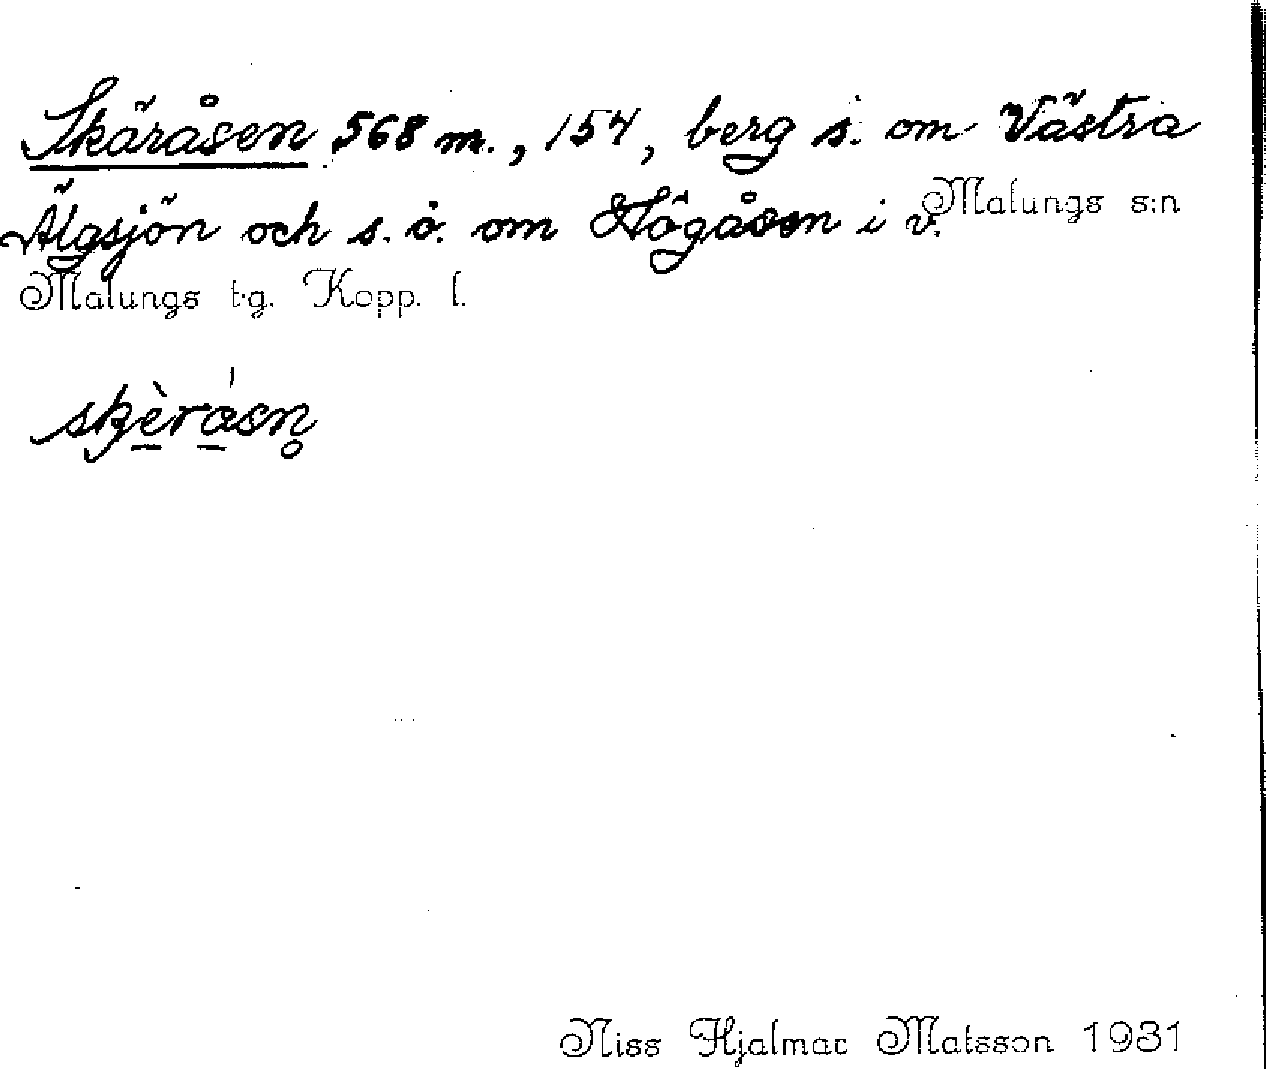 Skäråsen 568 m., 154, berg s. om Västra
Älgsjön och s. ö. om Högåsen i v.
Malungs s:n
Malungs t.g. Kopp. l.
skèråsn̥
Niss Hjalmar Matsson 1931